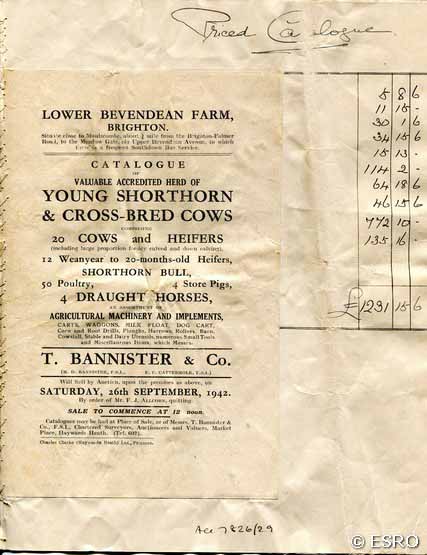 Priced Catalogue
LOWER BEVENDEAN FARM,
BRIGHTON.
Situate close to Moulsecombe, about ¾ mile from the Brighton-Falmer
Road, to the Meadow Gate, via Upper Bevendean Avenue, to which
there is a frequent Southdown Bus Service.
CATALOGUE
OF
VALUABLE ACCREDITED HERD OF
YOUNG SHORTHORN
& CROSS-BRED COWS
COMPRISING
20 COWS and HEIFERS
(including large proportion for dry calved and down calving),
12 Weanyear to 20-months-old Heifers,
SHORTHORN BULL,
50 Poultry, 4 Store Pigs,
4 DRAUGHT HORSES,
AN ASSORTMENT OF
AGRICULTURAL MACHINERY AND IMPLEMENTS,
CARTS, WAGGONS, MILK FLOAT, DOG CART,
Corn and Root Drills, Ploughs, Harrows, Rollers, Barn,
Cowstall, Stable and Dairy Utensils, numerous Small Tools
and Miscellaneous Items, which Messrs.
T. BANNISTER & Co.
(R. D. BANNISTER, F.S.I., E. C. CATTERMOLE, F.S.I.)
Will Sell by Auction, upon the premises as above, on
SATURDAY, 26th SEPTEMBER, 1942.
By order of Mr. F. J. ALLCORN, quitting.
SALE TO COMMENCE AT 12 noon.
Catalogues may be had at Place of Sale, or of Messrs. T. Bannister &
Co., F.S.I., Chartered Surveyors, Auctioneers and Valuers, Market
Place, Haywards Heath. (Tel. 607).
Charles Clarke (Haywards Heath) Ltd., Printers.
5 8 6
11 15 -
30 1 6
34 15 6
15 13 -
114 2 -
64 18 6
46 15 6
772 10 -
135 16 -
£1231 15 6
Acc 7826/29
© ESRO